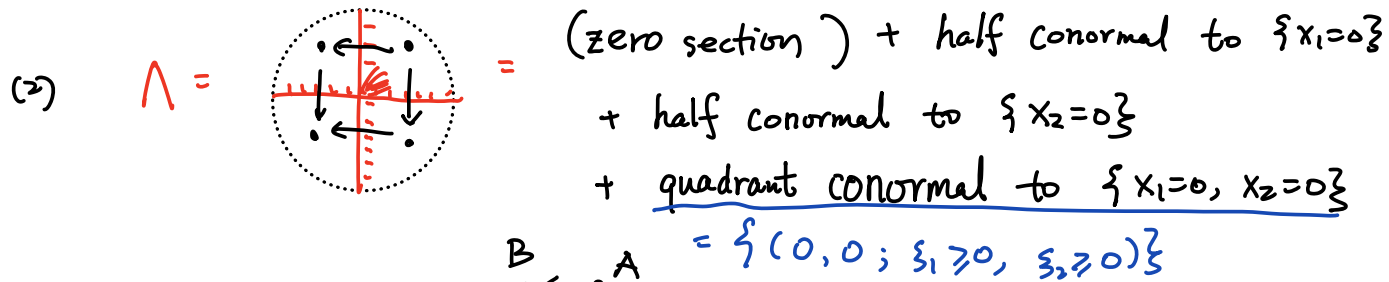 (2) Λ = = (zero section) + half conormal to {x₁=0}
+ half conormal to {x₂=0}
+ quadrant conormal to {x₁=0, x₂=0}
= {(0,0; ξ₁≥0, ξ₂≥0)}
B A